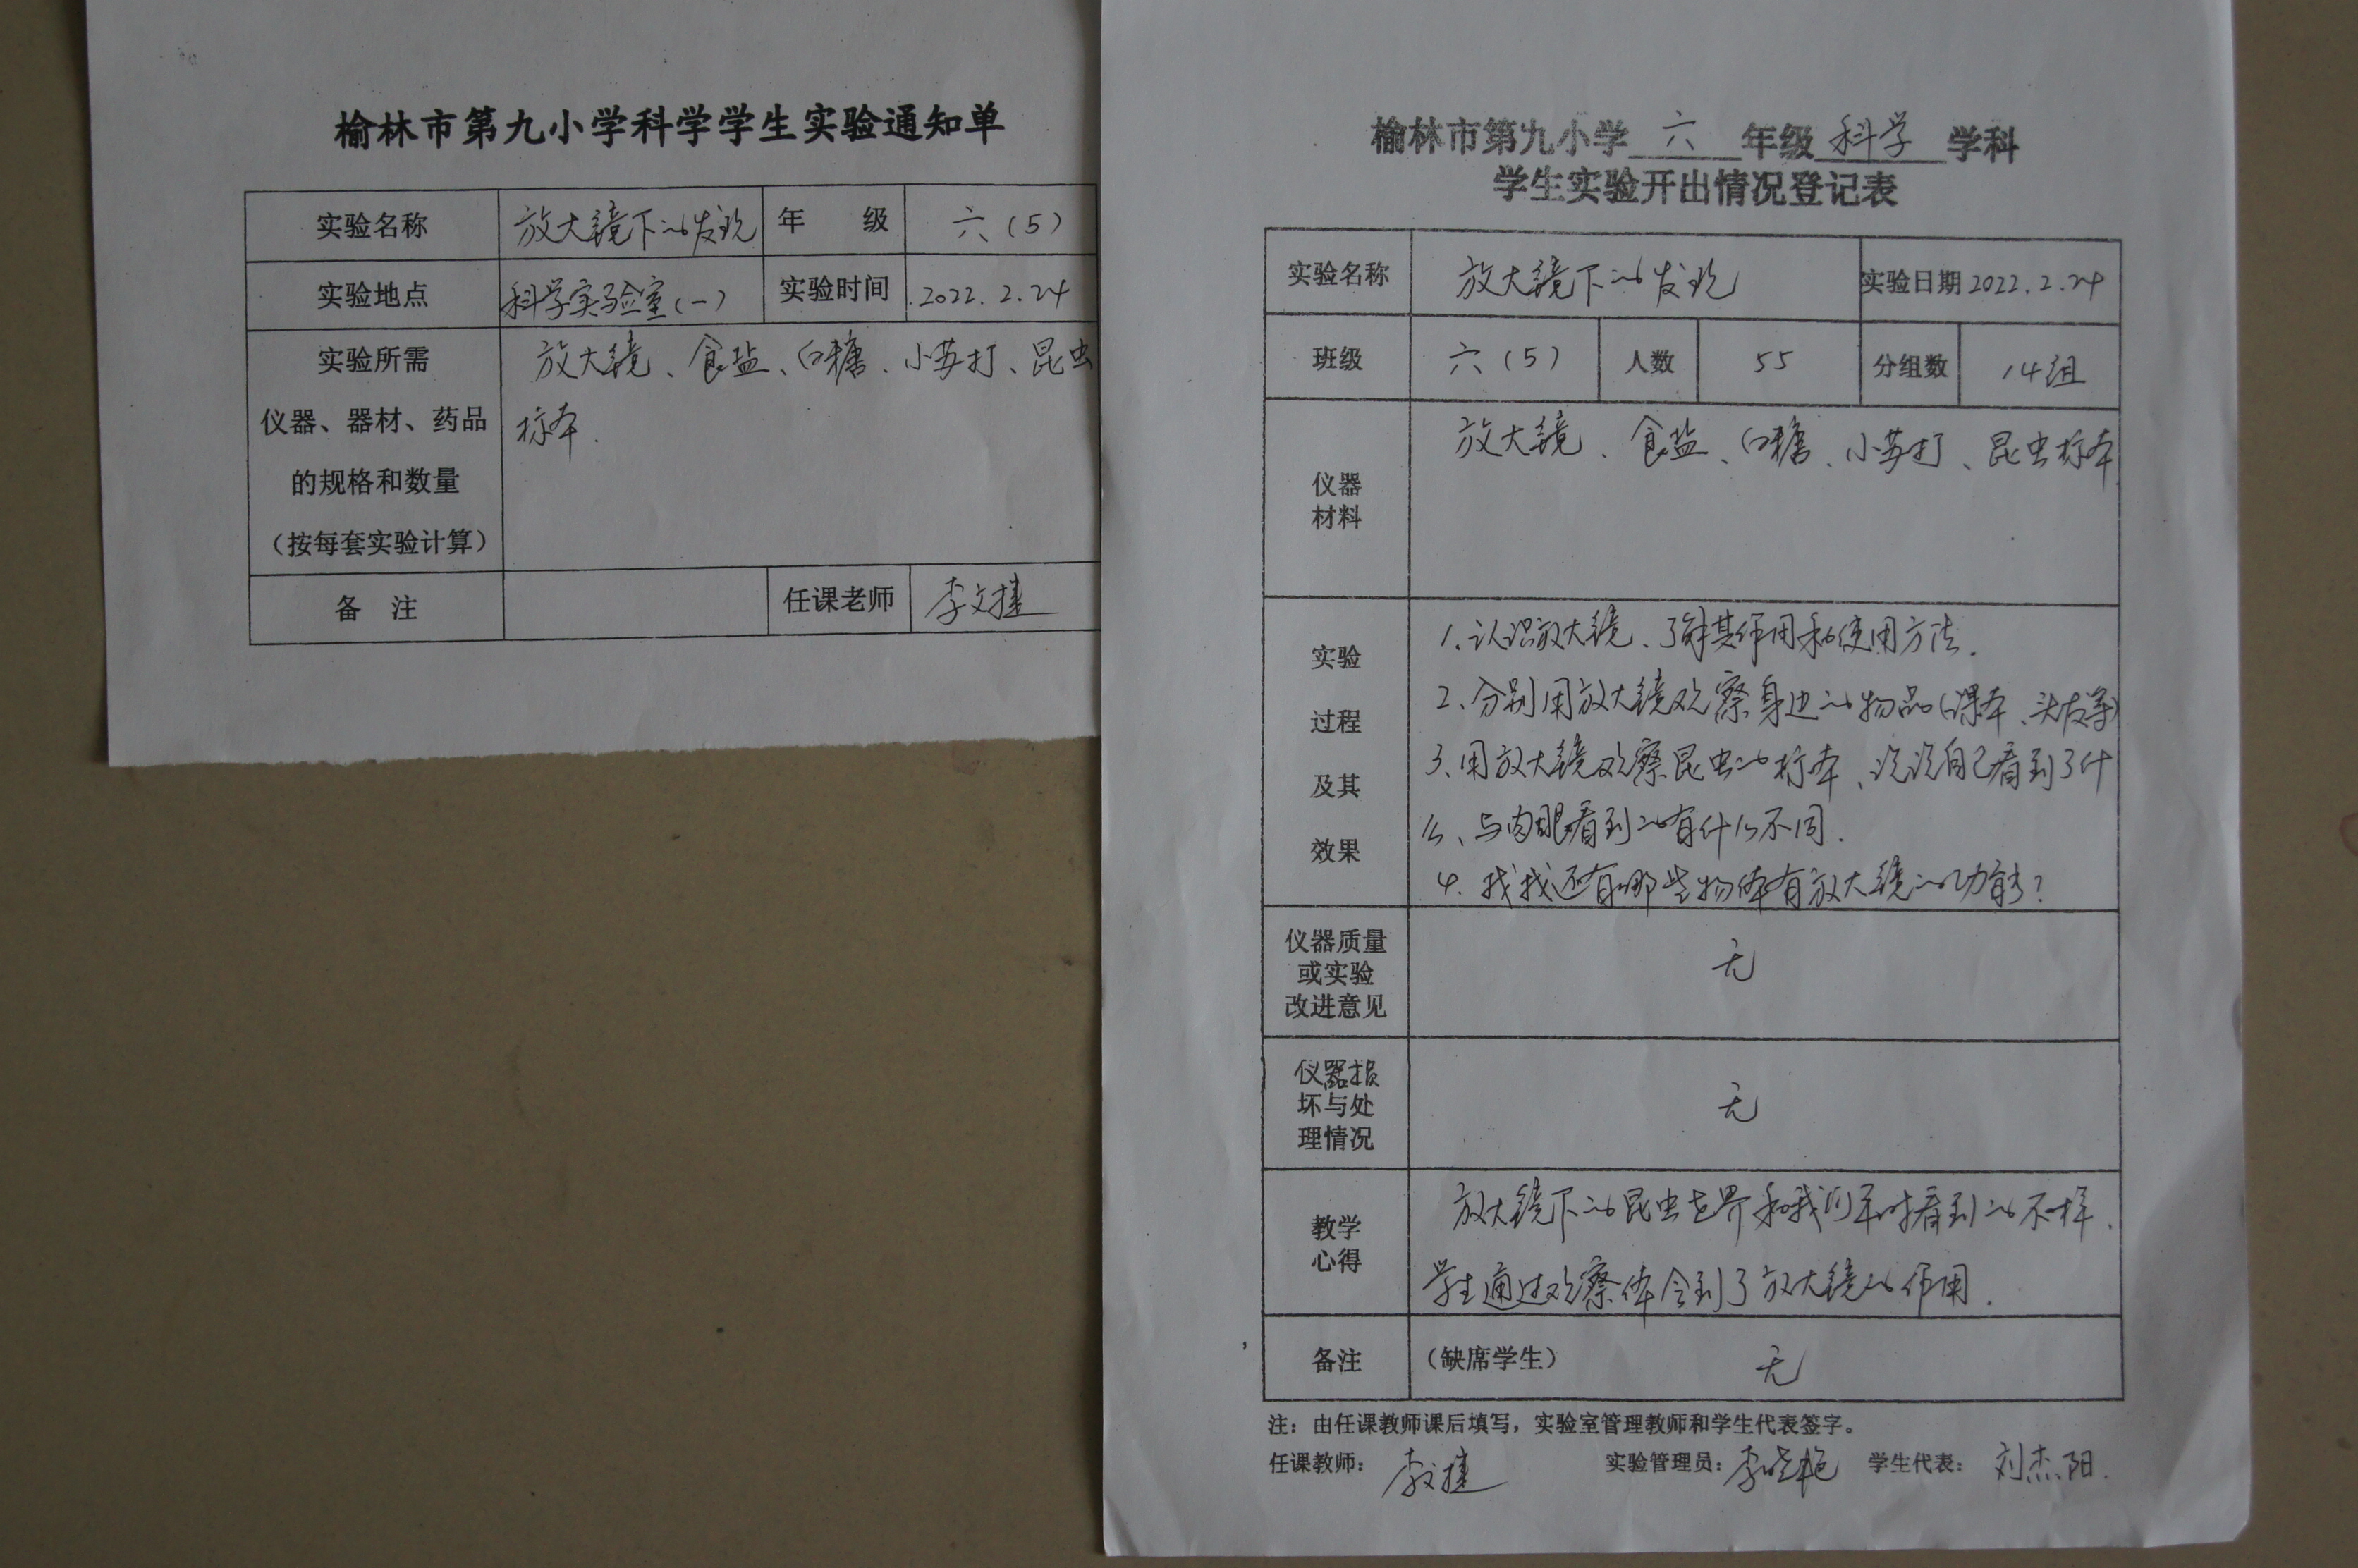 榆林市第九小学科学学生实验通知单
实验名称 放大镜下的发现 年 级 六(5)
实验地点 科学实验室(一) 实验时间 2022.2.24
实验所需
仪器、器材、药品
的规格和数量
(按每套实验计算)
放大镜、食盐、白糖、小苏打、昆虫
标本.
备 注 任课老师 李文捷
榆林市第九小学 六 年级 科学 学科
学生实验开出情况登记表
实验名称 放大镜下的发现 实验日期 2022.2.24
班级 六(5) 人数 55 分组数 14组
仪器
材料
放大镜、食盐、白糖、小苏打、昆虫标本
实验
过程
及其
效果
1、认识放大镜、了解其作用和使用方法.
2、分别用放大镜观察身边的物品(课本、头发等)
3、用放大镜观察昆虫的标本、说说自己看到了什
么、与肉眼看到的有什么不同.
4. 找找还有哪些物体有放大镜的功能?
仪器质量
或实验
改进意见
无
仪器损
坏与处
理情况
无
教学
心得
放大镜下的昆虫世界和我们平时看到的不一样.
学生通过观察体会到了放大镜的作用.
备注 (缺席学生) 无
注:由任课教师课后填写,实验室管理教师和学生代表签字。
任课教师: 李文捷 实验管理员: 李晓艳 学生代表: 刘杰阳.